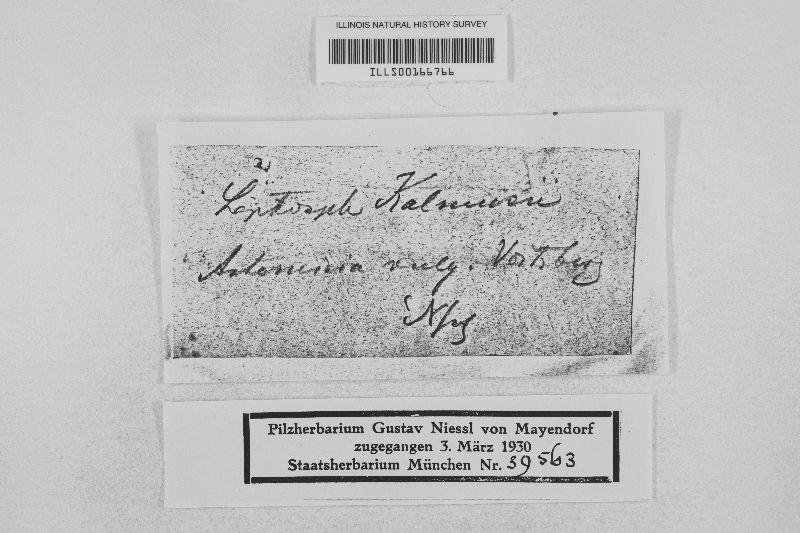 ILLINOIS NATURAL HISTORY SURVEY
ILLS00166766
2)
Leptosph Kalmusii
Artemisia vulg. Voitsberg
Nssl
Pilzherbarium Gustav Niessl von Mayendorf
zugegangen 3. März 1930
Staatsherbarium München Nr. 39563